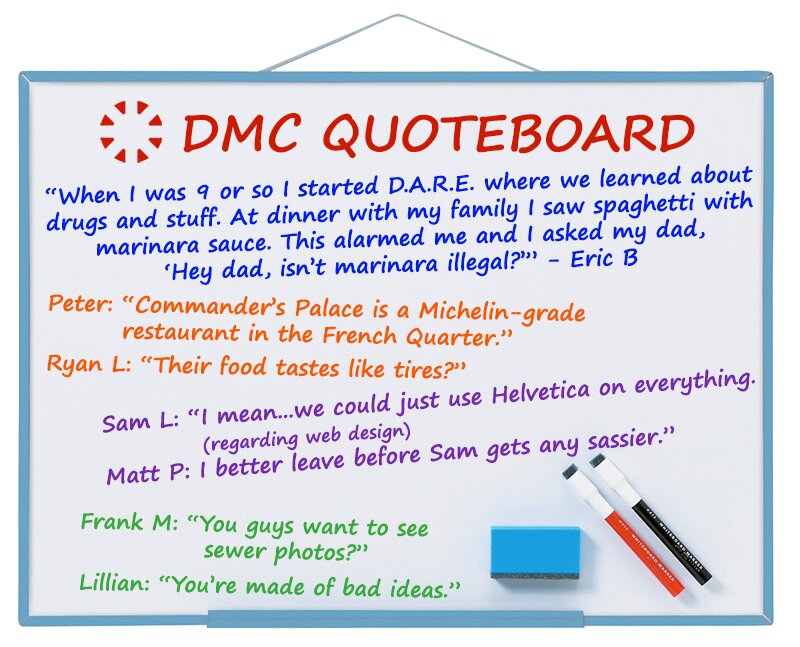 DMC QUOTEBOARD
“When I was 9 or so I started D.A.R.E. where we learned about
drugs and stuff. At dinner with my family I saw spaghetti with
marinara sauce. This alarmed me and I asked my dad,
‘Hey dad, isn’t marinara illegal?’” - Eric B
Peter: “Commander’s Palace is a Michelin-grade
restaurant in the French Quarter.”
Ryan L: “Their food tastes like tires?”
Sam L: “I mean...we could just use Helvetica on everything.
(regarding web design)
Matt P: I better leave before Sam gets any sassier.”
Frank M: “You guys want to see
sewer photos?”
Lillian: “You’re made of bad ideas.”
WHITEBOARD MARKER
WHITEBOARD MARKER